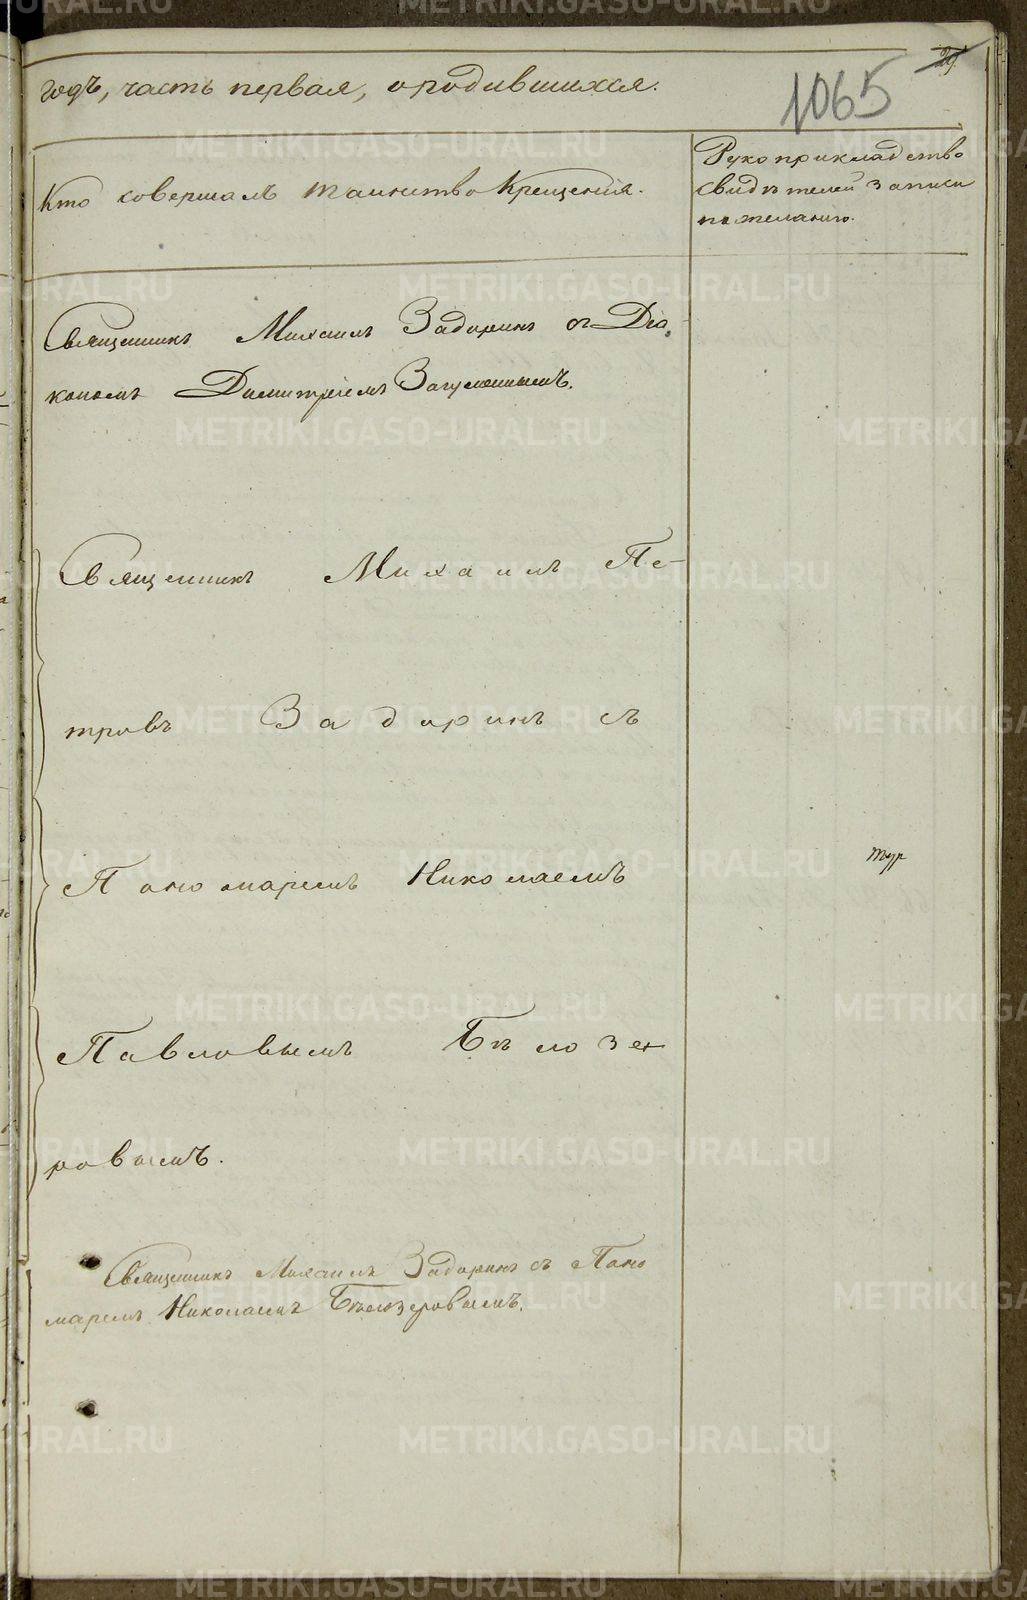 29
1065
годъ, часть первая, о родившихся.
Кто совершалъ таинство Крещенiя.
Рукоприкладство
свидѣтелей записи
по желанiю.
Священникъ Михаилъ Задоринъ съ Дiа-
кономъ Димитрiемъ Загуменнымъ.
Священникъ Михаилъ Пе-
тровъ Задоринъ съ
Пономаремъ Николаемъ
Павловымъ Бѣлозе-
ровымъ.
Священникъ Михаилъ Задоринъ съ Поно
маремъ Николаемъ Бѣлозеровымъ.
METRIKI.GASO-URAL.RU